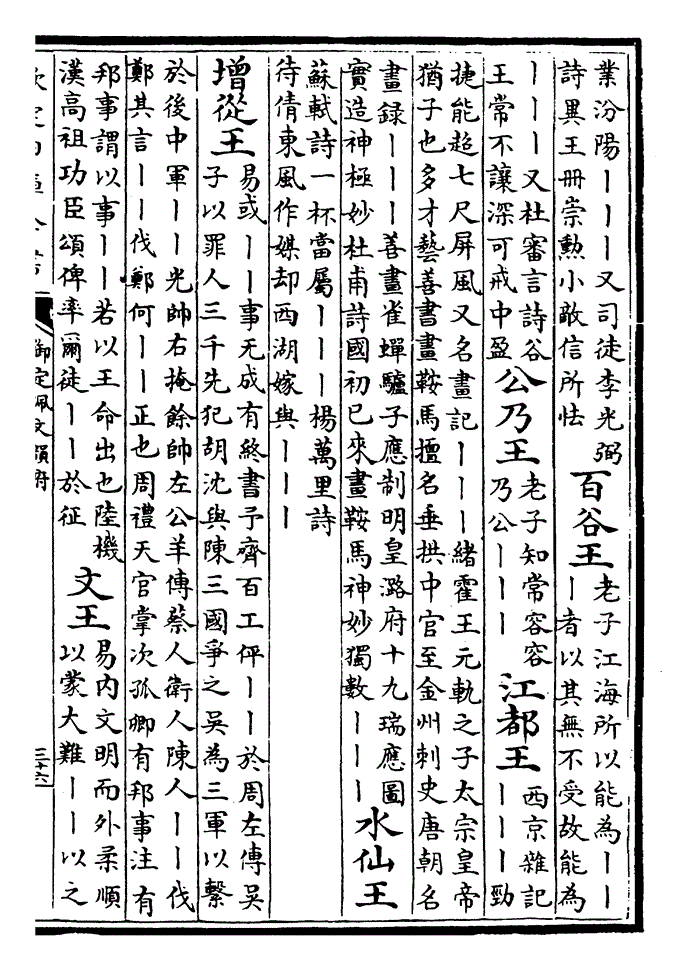 業汾陽｜｜｜又司徒李光弼
詩異王冊崇勲小敵信所怯
百谷王
老子江海所以能為｜｜
｜者以其無不受故能為
｜｜｜又杜審言詩谷
王常不讓深可戒中盈
公乃王
老子知常容容
乃公｜｜｜
江都王
西京雜記
｜｜｜勁
捷能超七尺屏風又名畫記｜｜｜緒霍王元軌之子太宗皇帝
猶子也多才藝善書畫鞍馬擅名垂拱中官至金州刺史唐朝名
畫録｜｜｜善畫雀蟬驢子應制明皇潞府十九瑞應圖
實造神極妙杜甫詩國初已來畫鞍馬神妙獨數｜｜｜
水仙王
蘇軾詩一杯當屬｜｜｜楊萬里詩
待倩東風作媒却西湖嫁與｜｜｜
增從王
易或｜｜事无成有終書予齊百工伻｜｜於周左傳吳
子以罪人三千先犯胡沈與陳三國爭之吳為三軍以繫
於後中軍｜｜光帥右掩餘帥左公羊傳蔡人衛人陳人｜｜伐
鄭其言｜｜伐鄭何｜｜正也周禮天官掌次孤卿有邦事注有
邦事謂以事｜｜若以王命出也陸機
漢高祖功臣頌俾率爾徒｜｜於征
文王
易内文明而外柔順
以蒙大難｜｜以之
欽定四庫全書
御定佩文韻府
三十六